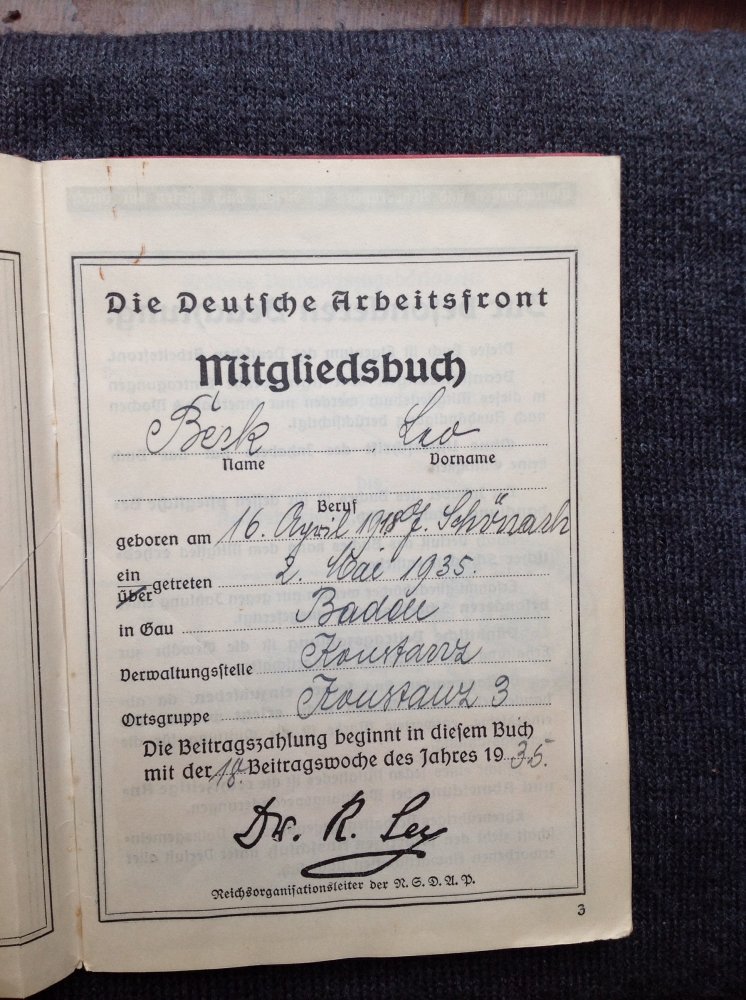 Die Deutsche Arbeitsfront
Mitgliedsbuch
Berk Leo
Name Vorname
Beruf
geboren am 16. April i. Schönach
ein
über getreten 2. Mai 1935.
in Gau Baden
Verwaltungsstelle Konstanz
Ortsgruppe Konstanz 3
Die Beitragszahlung beginnt in diesem Buch
mit der 18. Beitragswoche des Jahres 1935.
Dr. R. Ley
Reichsorganisationsleiter der N.S.D.A.P.
3